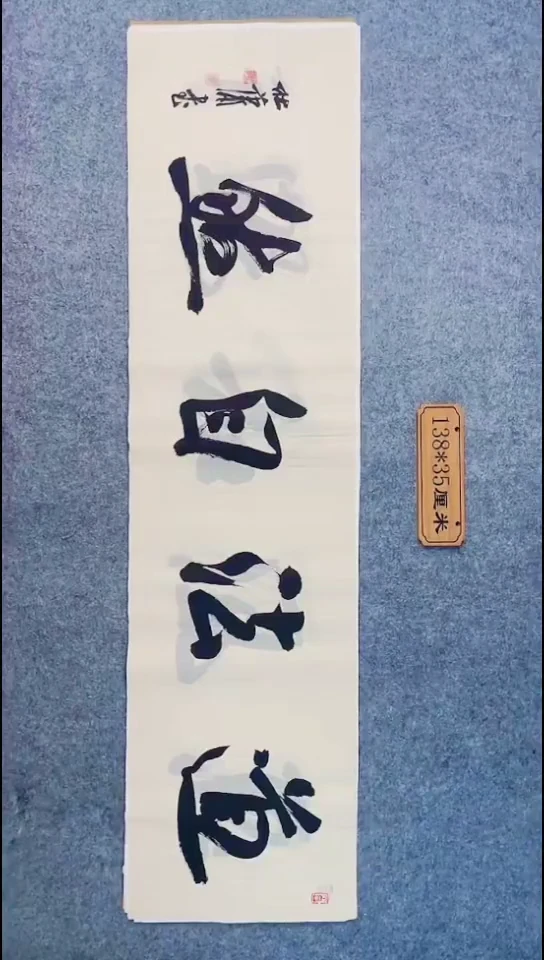 道法自然
书
138*35厘米